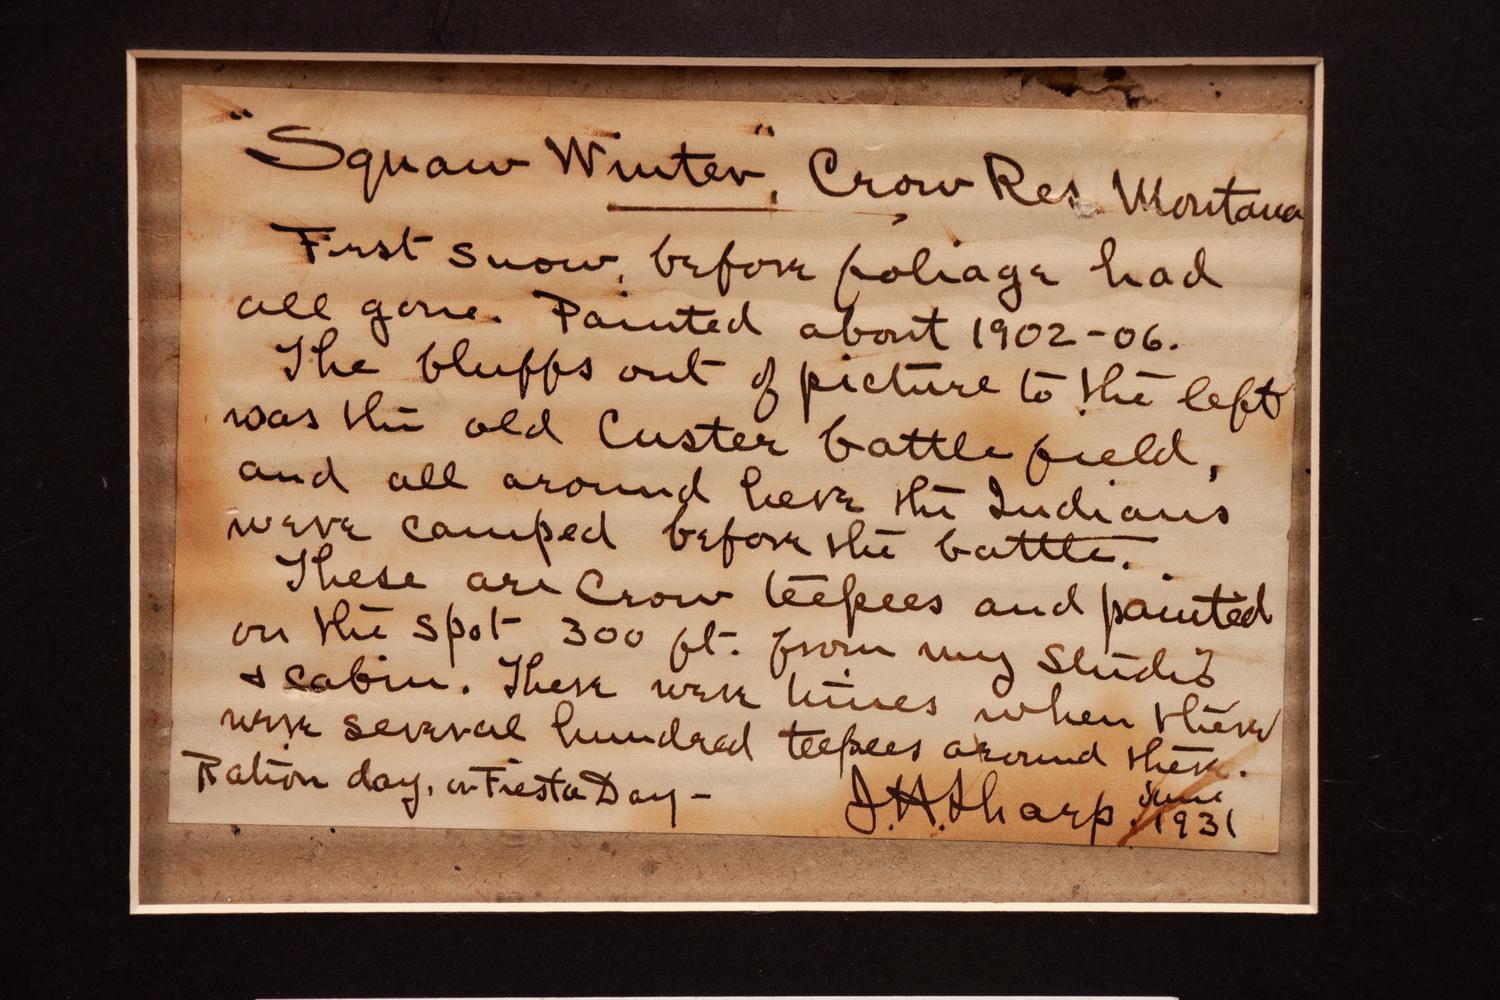 "Squaw Winter", Crow Res. Montana
First snow, before foliage had
all gone. Painted about 1902-06.
The bluffs out of picture to the left
was the old Custer battle field,
and all around here the Indians
were camped before the battle.
These are Crow teepees and painted
on the spot 300 ft. from my studio
& cabin. There were times when there
were several hundred teepees around there.
Ration day, or Fiesta Day -
J.H. Sharp. June 1931